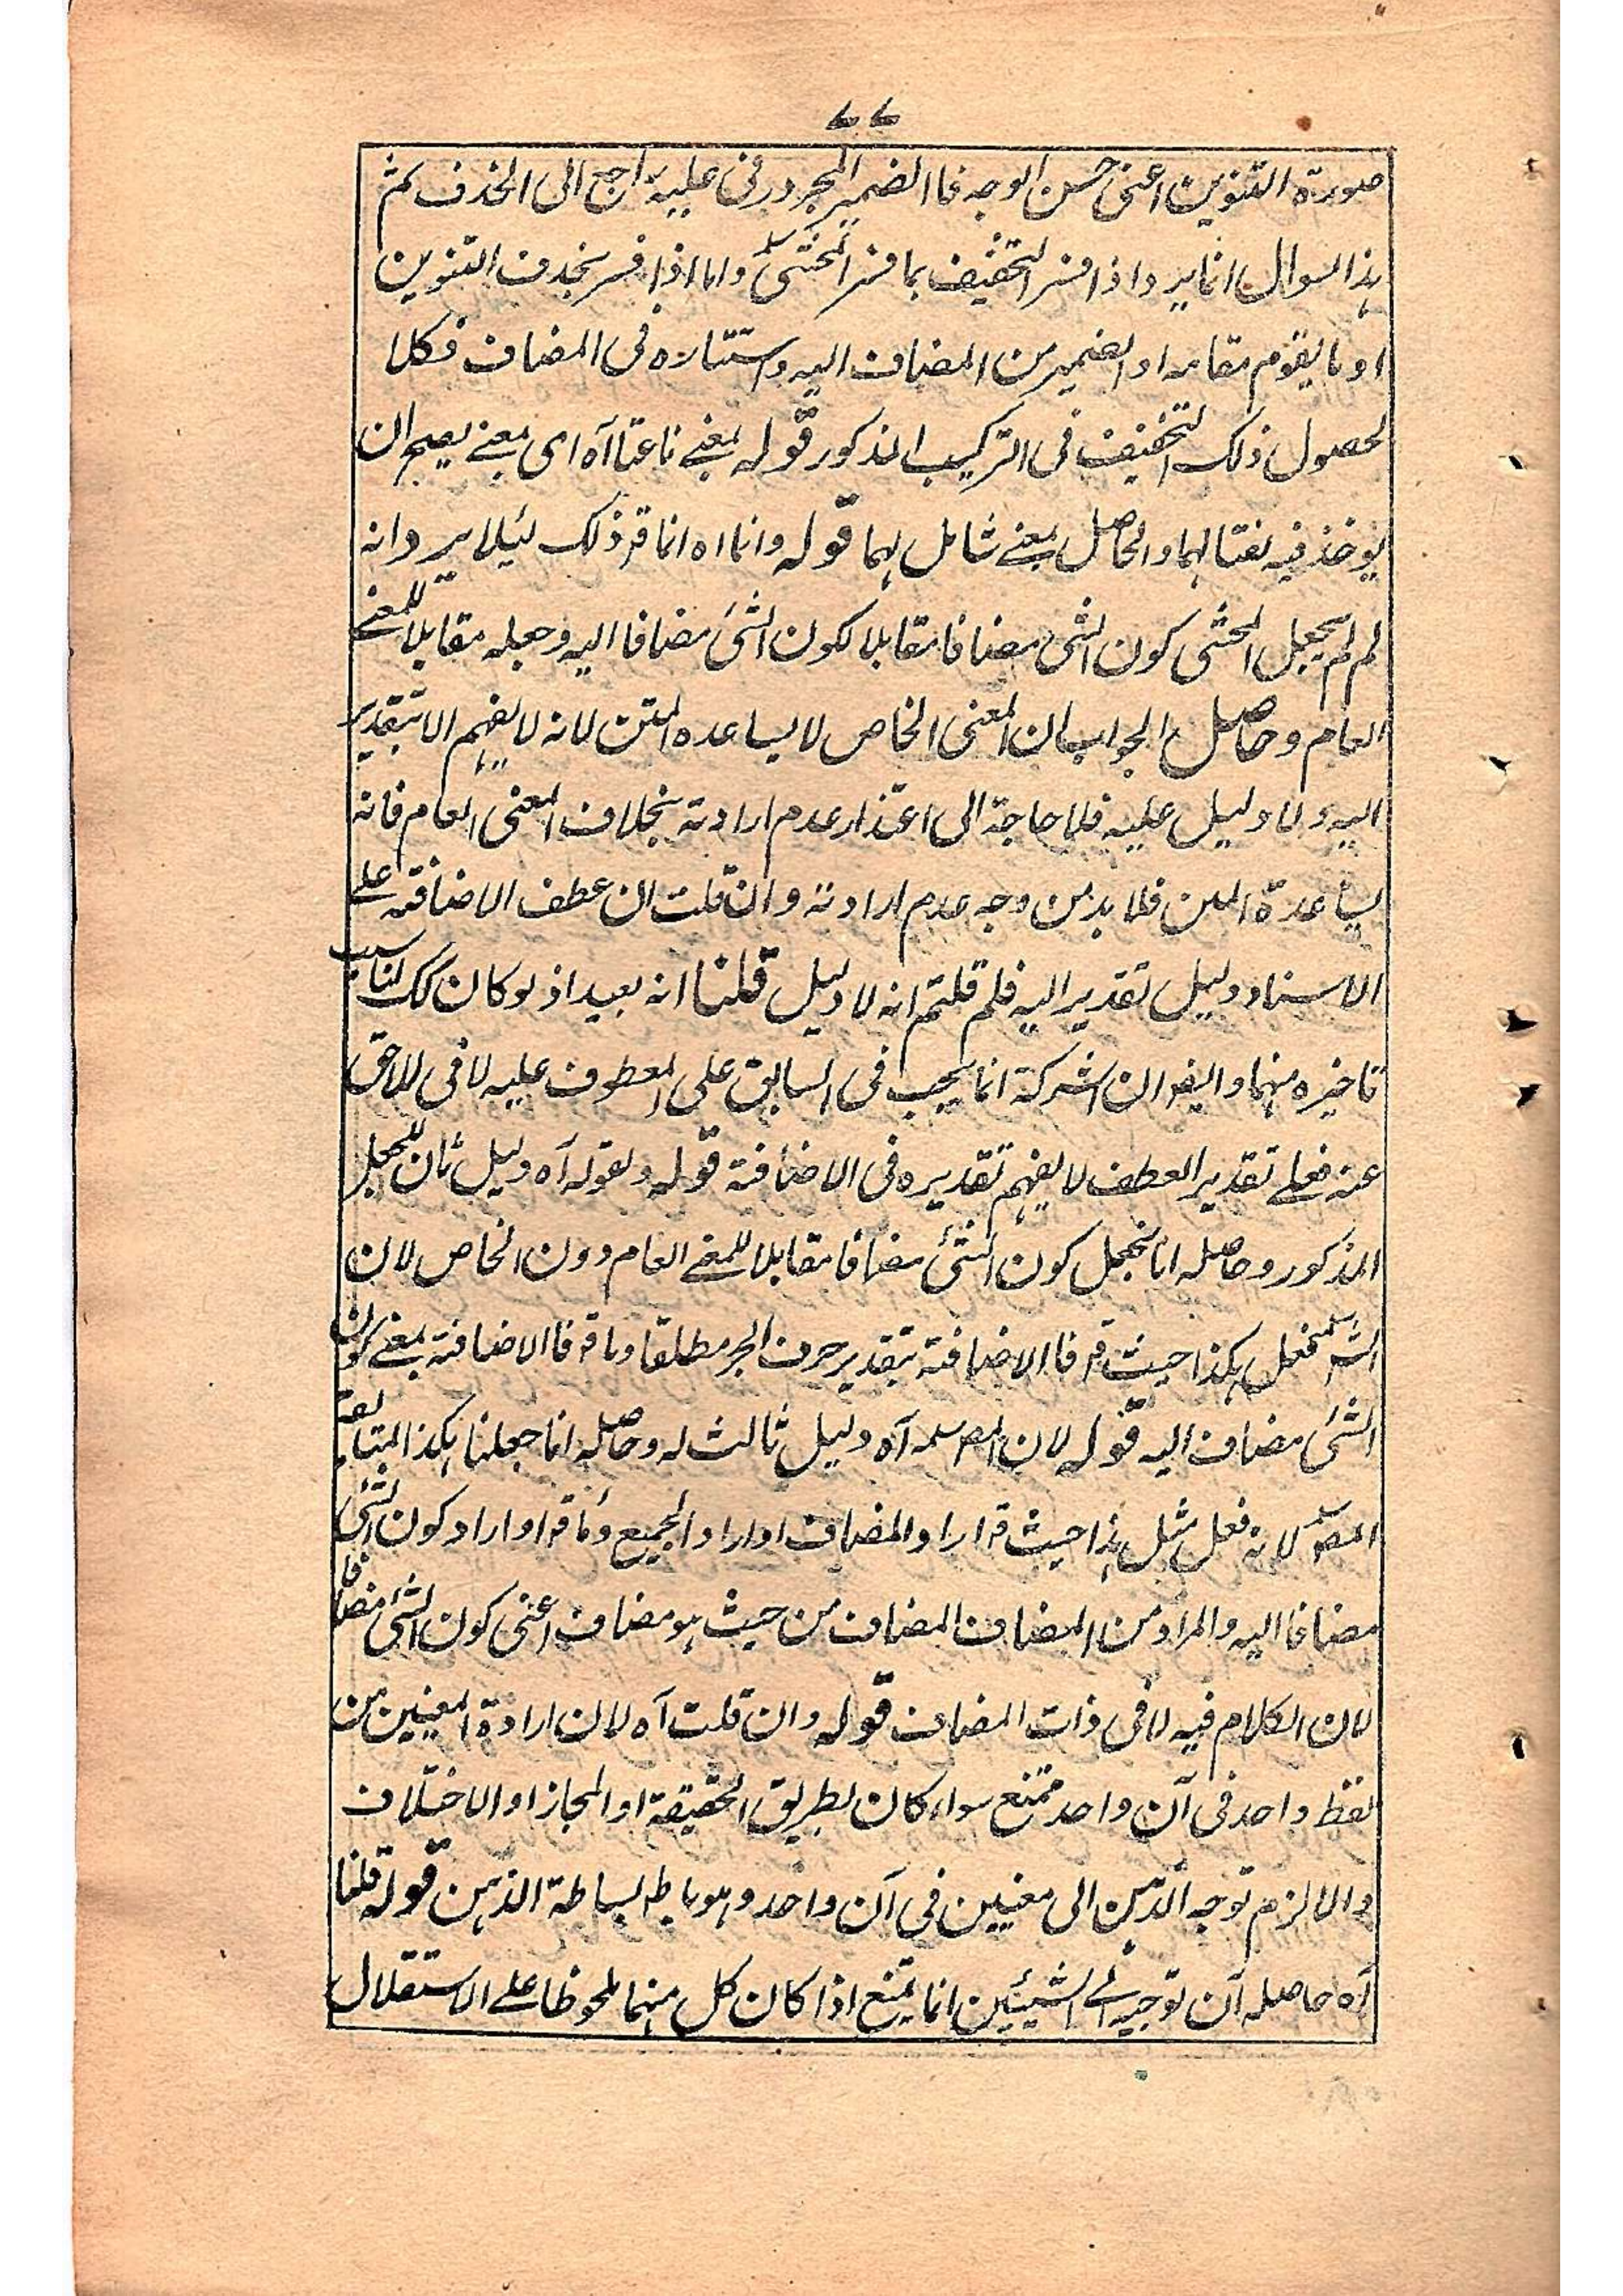 ٧٧
صورة التنوين اعنى حسن الوجه فاالضمير المجرور فى عليه راجع الى الحذف ثم
هذا السوال انما يرد اذا فسر التخفيف بما فسر المحشى واما اذا فسر بحذف التنوين
او ما يقوم مقامه او الضمير من المضاف اليه واستتاره فى المضاف فكلا
لحصول ذلك التخفيف فى التركيب المذكور قوله بمعنے ناعتا آه اى بمعنے يصح ان
يوخذ فيه نعتا لهما والحاصل بمعنے شامل لهما قوله وانما اه انما قه ذلك ليئلا يرد انه
لم لم يجعل المحشى كون الشئ مضافا مقابلا لكون الشئ مضافا اليه وجعله مقابلا للمعنے
العام وحاصل الجواب ان المعنى الخاص لا يساعده المتن لانه لا يفهم الا بتقدير
اليه ولا دليل عليه فلا حاجة الى اعتذار عدم ارادته بخلاف المعنى العام فانه
يساعدة المتن فلا بد من وجه عدم ارادته وان قلت ان عطف الاضافة علے
الاسناد دليل تقدير اليه فلم قلتم انه لا دليل قلنا انه بعيد اذ لو كان كك لناسب
تاخيره منهما وايضا ان الشركة انما يجب فى السابق على المعطوف عليه لا فى اللاحق
عنه فعلے تقدير العطف لا يفهم تقديره فى الاضافة قوله ولقوله آه دليل ثان للجعل
المذكور وحاصله انا نجعل كون الشئ مضافا مقابلا للمعنے العام دون الخاص لان
الشه فعل هكذا حيث قه فاالاضافة بتقدير حرف الجر مطلقا وما قه فاالاضافة بمعنے كون
الشئ مضاف اليه قوله لان المص سلمه آه دليل ثالث له وحاصله انما جعلنا هكذا المتابعة
المص لانه فعل مثل هذا حيث قه اراد المضاف او اراد الجميع وما قه او اراد كون الشئ
مضافا اليه والمراد من المضاف المضاف من حيث هو مضاف اعنى كون الشئ مضافا
لان الكلام فيه لا فى ذات المضاف قوله وان قلت آه لان ارادة المعنيين من
لفظ واحد فى آن واحد ممتنع سواء كان بطريق الحقيقة او المجاز او الاختلاف
والا لزم توجه الذهن الى معنيين فى آن واحد وهو باطل لبساطة الذهن قوله قلنا
آه حاصله ان توجيه الے الشيئين انما يمتنع اذا كان كل منهما ملحوظا علے الاستقلال